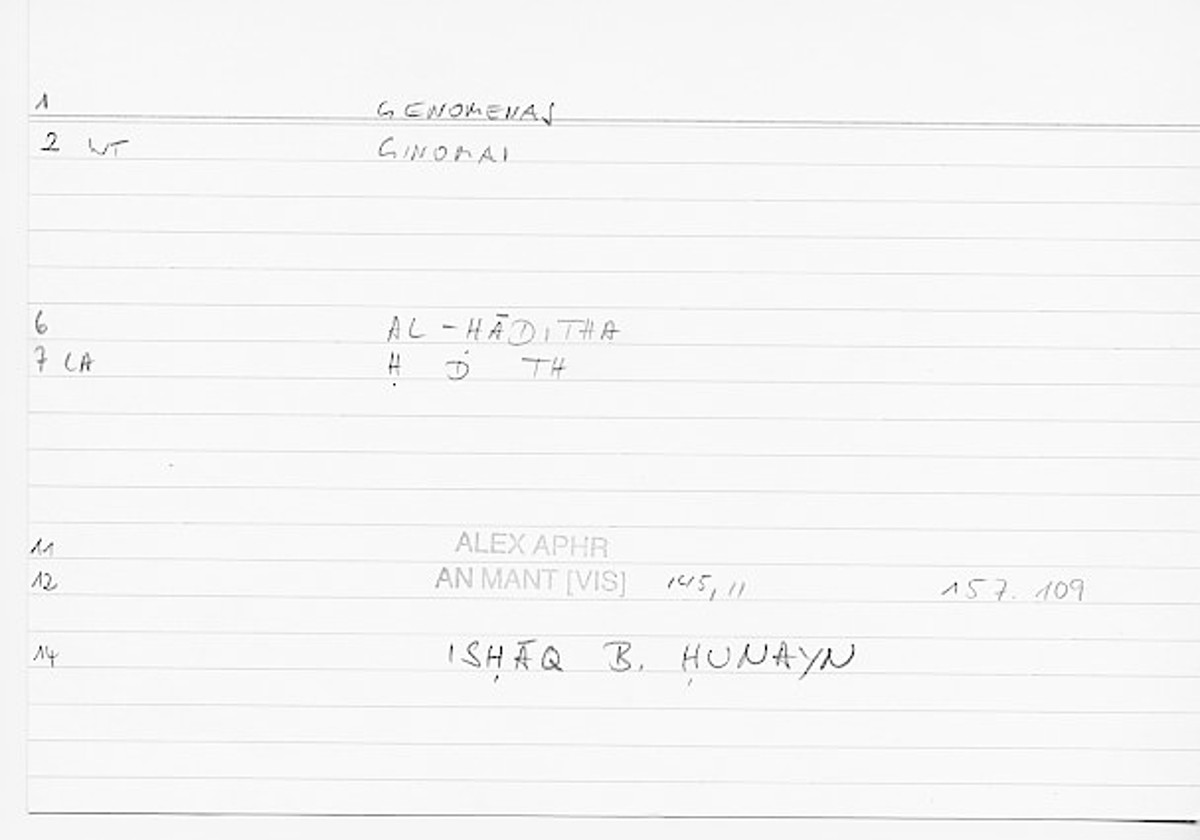 1 GENOMENAS
2 WT GINOMAI
6 AL-HĀDITHA
7 LA Ḥ D TH
11 ALEX APHR
12 AN MANT [VIS] 145,11 157.109
14 ISḤĀQ B. ḤUNAYN